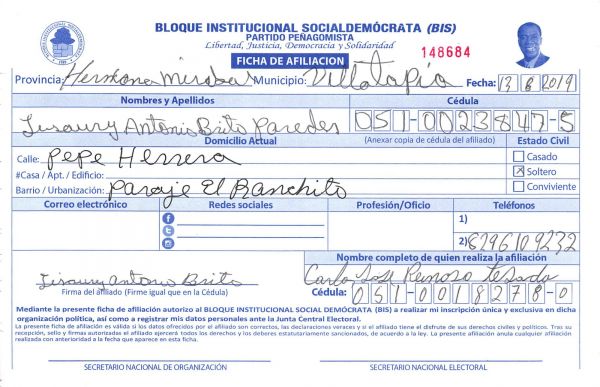 BLOQUE INSTITUCIONAL SOCIALDEMÓCRATA (BIS)
PARTIDO PEÑAGOMISTA
Libertad, Justicia, Democracia y Solidaridad
148684
FICHA DE AFILIACION
Provincia: Hermana Mirabal Municipio: Villa Tapia Fecha: 13 8 2019
Nombres y Apellidos Cédula
Jisaury Antonio Brito Paredes 051-0023847-5
Domicilio Actual (Anexar copia de cédula del afiliado) Estado Civil
Calle: Pepe Herrera Casado
#Casa / Apt. / Edificio: X Soltero
Barrio / Urbanización: Paraje El Ranchito Conviviente
Correo electrónico Redes sociales Profesión/Oficio Teléfonos
1)
2) 8296109232
Nombre completo de quien realiza la afiliación
Jisaury Antonio Brito Carlos José Reinoso
Firma del afiliado (Firme igual que en la Cédula) Cédula: 051-0018278-0
Mediante la presente ficha de afiliación autorizo al BLOQUE INSTITUCIONAL SOCIAL DEMÓCRATA (BIS) a realizar mi inscripción única y exclusiva en dicha
organización política, así como a registrar mis datos personales ante la Junta Central Electoral.
La presente ficha de afiliación es válida si los datos ofrecidos por el afiliado son correctos, las declaraciones veraces y si el afiliado tiene el disfrute de sus derechos civiles y políticos. Tras su
recepción, sello y firmas autorizadas el afiliado ejercerá todos los derechos y los deberes estatutariamente sancionados, de acuerdo a la ley. La presente afiliación anula cualquier afiliación
realizada con anterioridad a la fecha que aparece en esta ficha.
SECRETARIO NACIONAL DE ORGANIZACIÓN SECRETARIO NACIONAL ELECTORAL